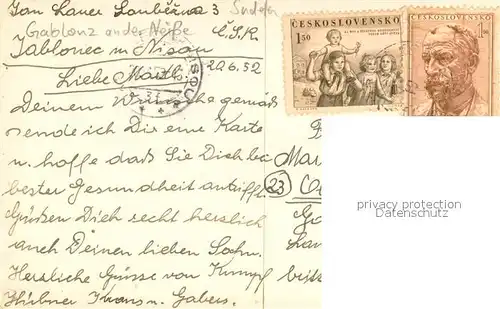 Jan Lauer Louběžna 3
Sudeten
Gablonz an der Neiße
Č.S.R.
Jablonec n Nisou
Liebe Martl! 20.6.52
Deinem Wunsche gemäß
sende ich Dir eine Karte
u. hoffe daß Sie Dich bei
bester Gesundheit antrifft.
Grüßen Dich recht herzlich
auch Deinen lieben Sohn.
Herzliche Grüsse von
Hübner u. Gabers.
ČESKOSLOVENSKO
1.50
ČESKOSLOVENSKO
Mar
23
privacy protection
Datenschutz